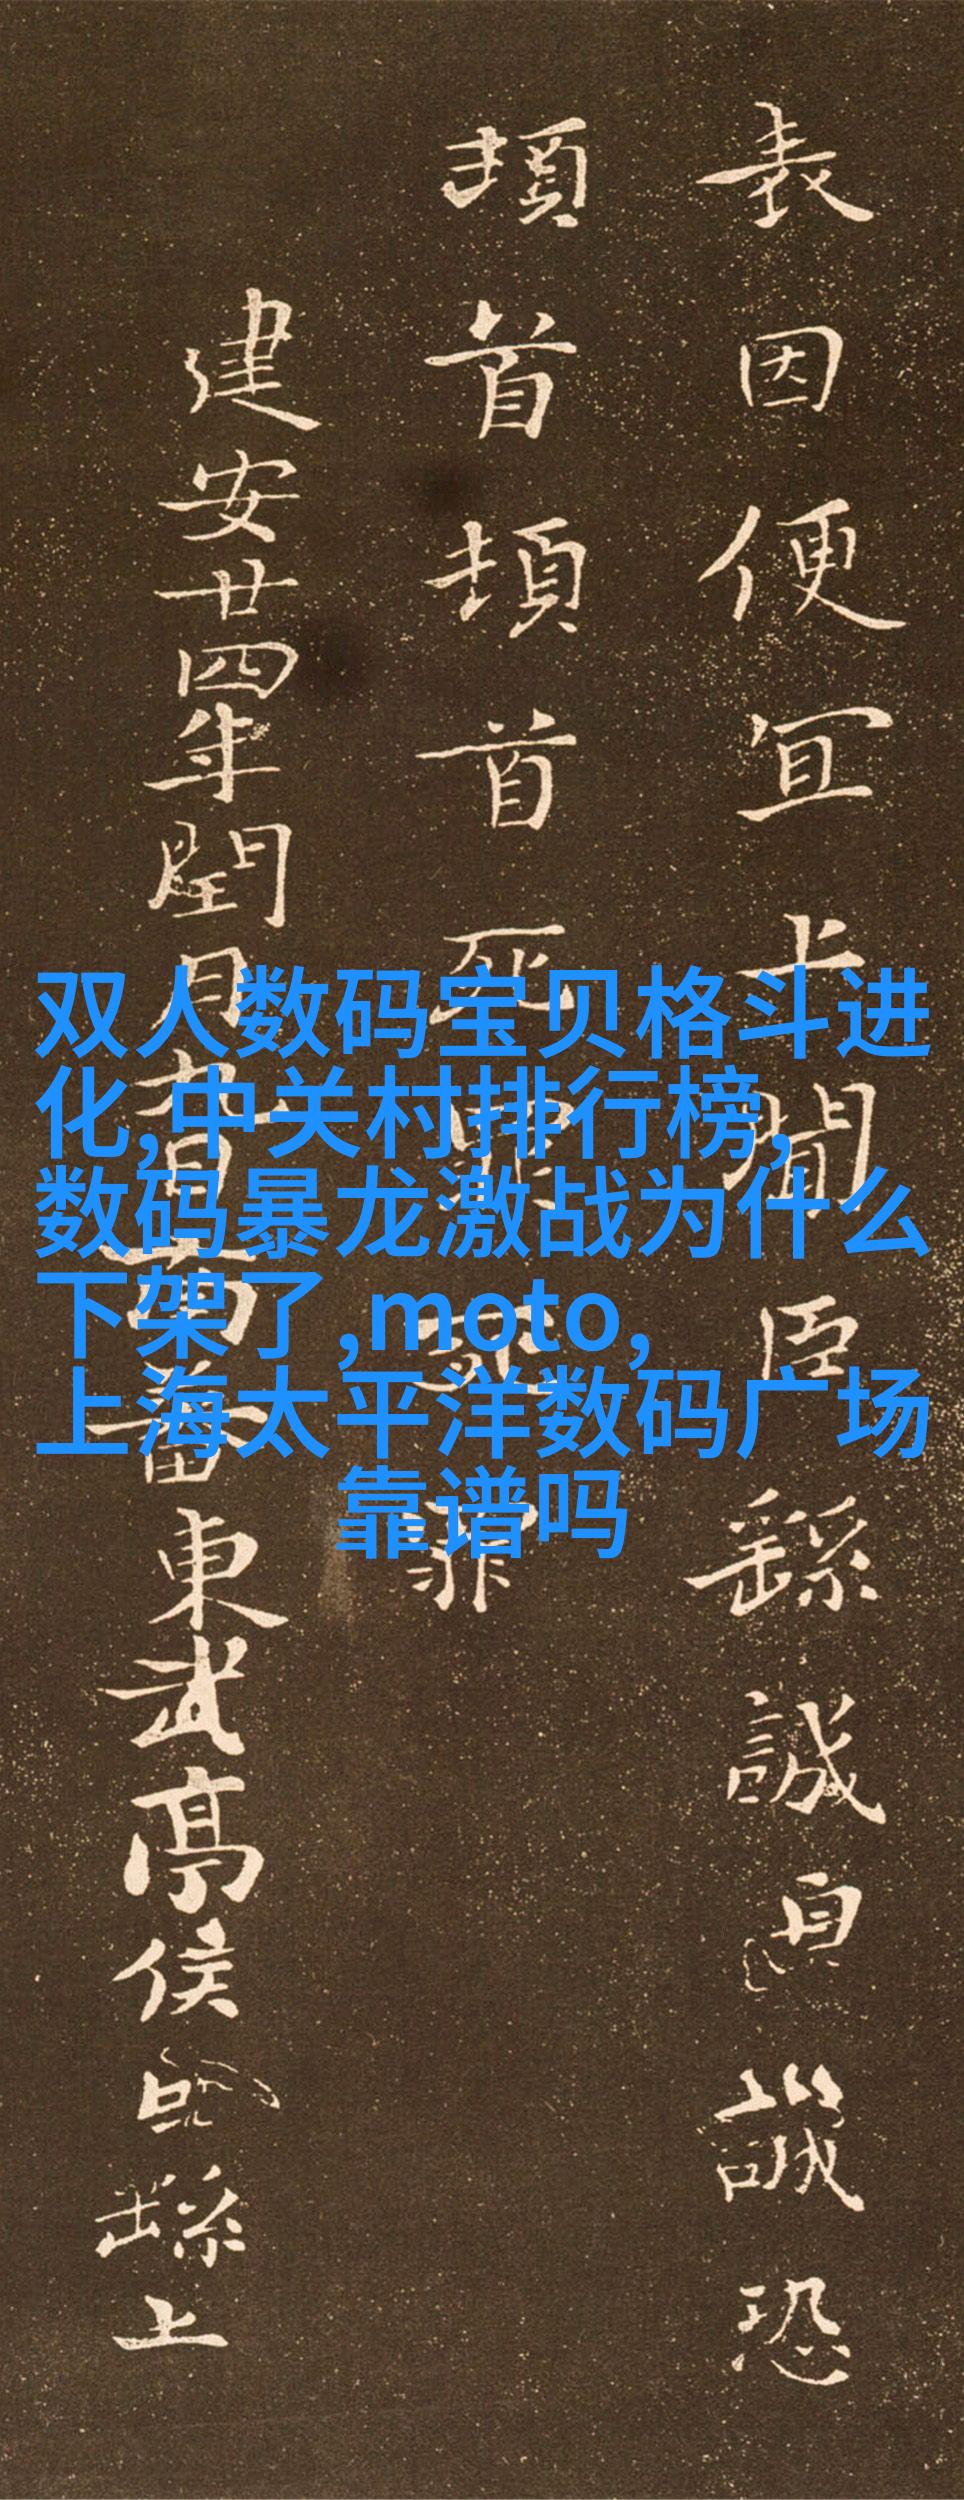 表因便宜上聞臣繇誠惶誠恐
頓首頓首死罪死罪
建安廿四年閏月九日南蕃東武亭侯臣繇上
双人数码宝贝格斗进
化,中关村排行榜,
数码暴龙激战为什么
下架了,moto,
上海太平洋数码广场
靠谱吗